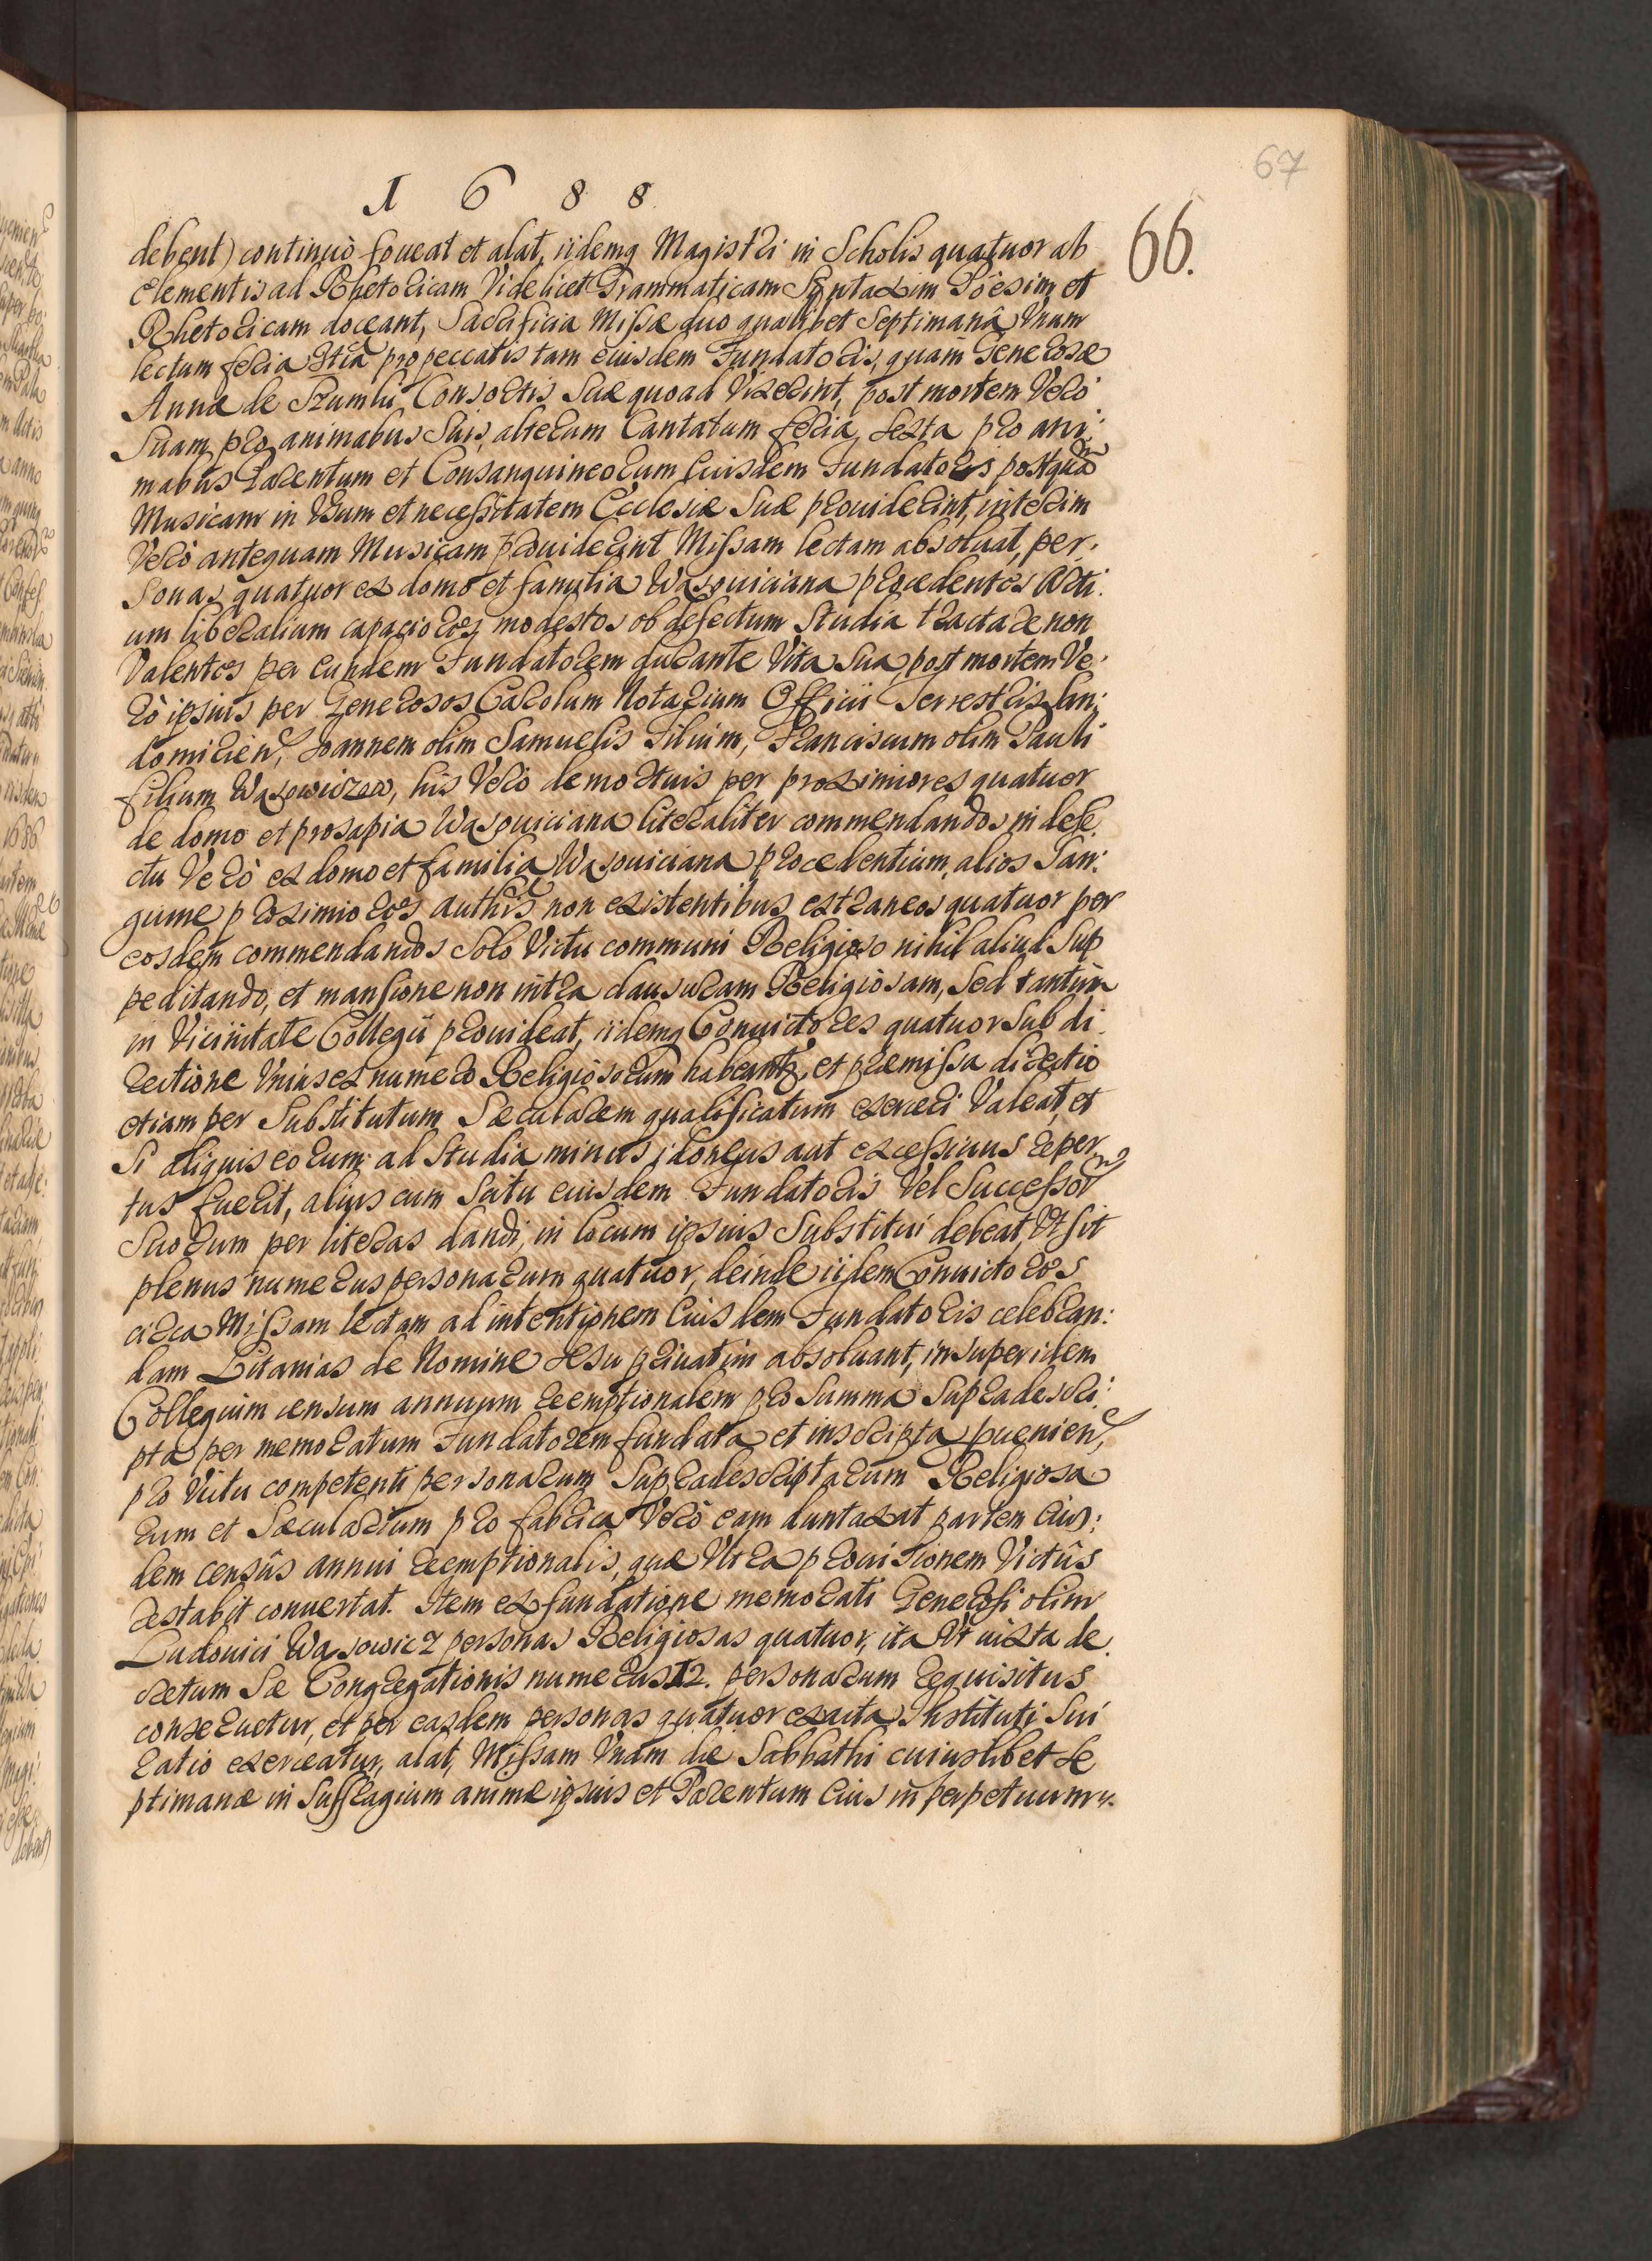 67
1688
66.
debent) continuò foueat et alat, iidemq Magistri in Scholis quatuor ab
elementis ad Rhetoricam Videlicet Grammaticam Syntaxim Poèsim et
Rhetoricam doceant, Sacrificia Missæ duo qualibet Septimanâ Vnum
lectum feria 3tia pro peccatis tam eiusdem Fundatoris, quam Generosæ
Annæ de Szumln Consortis Suæ quoad Vixerint, post mortem Verò
Suam pro animabus Suis, alterum Cantatum feria sexta pro ani:
mabus Parentum et Consanguineorum Eiusdem Fundatoris postquā
Musicam in Vsum et necessitatem Ecclesiæ Suæ prouiderint, interim
Verò antequam Musicam prouiderint Missam lectam absoluat, per:
sonas quatuor ex domo et familia Wąsouiciana procedentes Arti:
um liberalium capaciores modestos ob defectum Studia tractare non
Valentes per eundem Fundatorem durante Vita Sua, post mortem Ve:
rò ipsius per Generosos Carolum Notarium Officii Terrestris San:
domirien, Joannem olim Samuelis Filium, Franciscum olim Pauli
filium Wąsowiczow, his Verò demortuis per proximiores quatuor
de domo et prosapia Wąsouiciana literaliter commendandos in defe
ctu Verò ex domo et familia Wąsouiciana procedentium, alios San:
guine proximiores authis non existentibus extraneos quatuor per
eosdem commendandos Solo Victu communi Religioso nihil aliud Sup
peditando, et mansione non intra clausuram Religiosam, Sed tantum
in Vicinitate Collegii prouideat, iidemq Conuictores quatuor Sub di:
rectione Vnius ex numero Religiosorum habeantr, et præmissa directio
etiam per Substitutum Sæcularem qualificatum exerceri Valeat, et
Si aliquis eorum ad Studia minus idoneus aut excessiuus reper
tus fuerit, alius cum Scitu eiusdem Fundatoris Vel Successor
Suorum per literas dandi, in locum ipsius Substitui debeat, Vt sit
plenus numerus personarum quatuor, deinde iidem Conuictores
circa Missam lectam ad intentionem Eiusdem Fundatoris celebran:
dam Litanias de Nomine Jesu priuatim absoluant, insuper idem
Collegium censum annuum reemptionalem pro Summa Supradescri:
pta per memoratum Fundatorem fundata et inscripta puenien,
pro Victu competenti personarum Supradescriptarum Religiosa
rum et Sæcularium pro fabrica Verò eam duntaxat partem Eius:
dem censûs annui reemptionalis, quæ Vltra prouisionem Victûs
restabit conuertat. Item ex fundatione memorati Generosi olim
Ludouici Wąsowicz personas Religiosas quatuor, ita Vt iuxta de
cretum Sæ Congregationis numerus 12. personarum requisitus
conseruetur, et per easdem personas quatuor exacta Instituti Sui
ratio exerceatur, alat, Missam Vnam die Sabbathi cuiuslibet Se
ptimanæ in Suffragium animæ ipsius et Parentum Eius in perpetuum